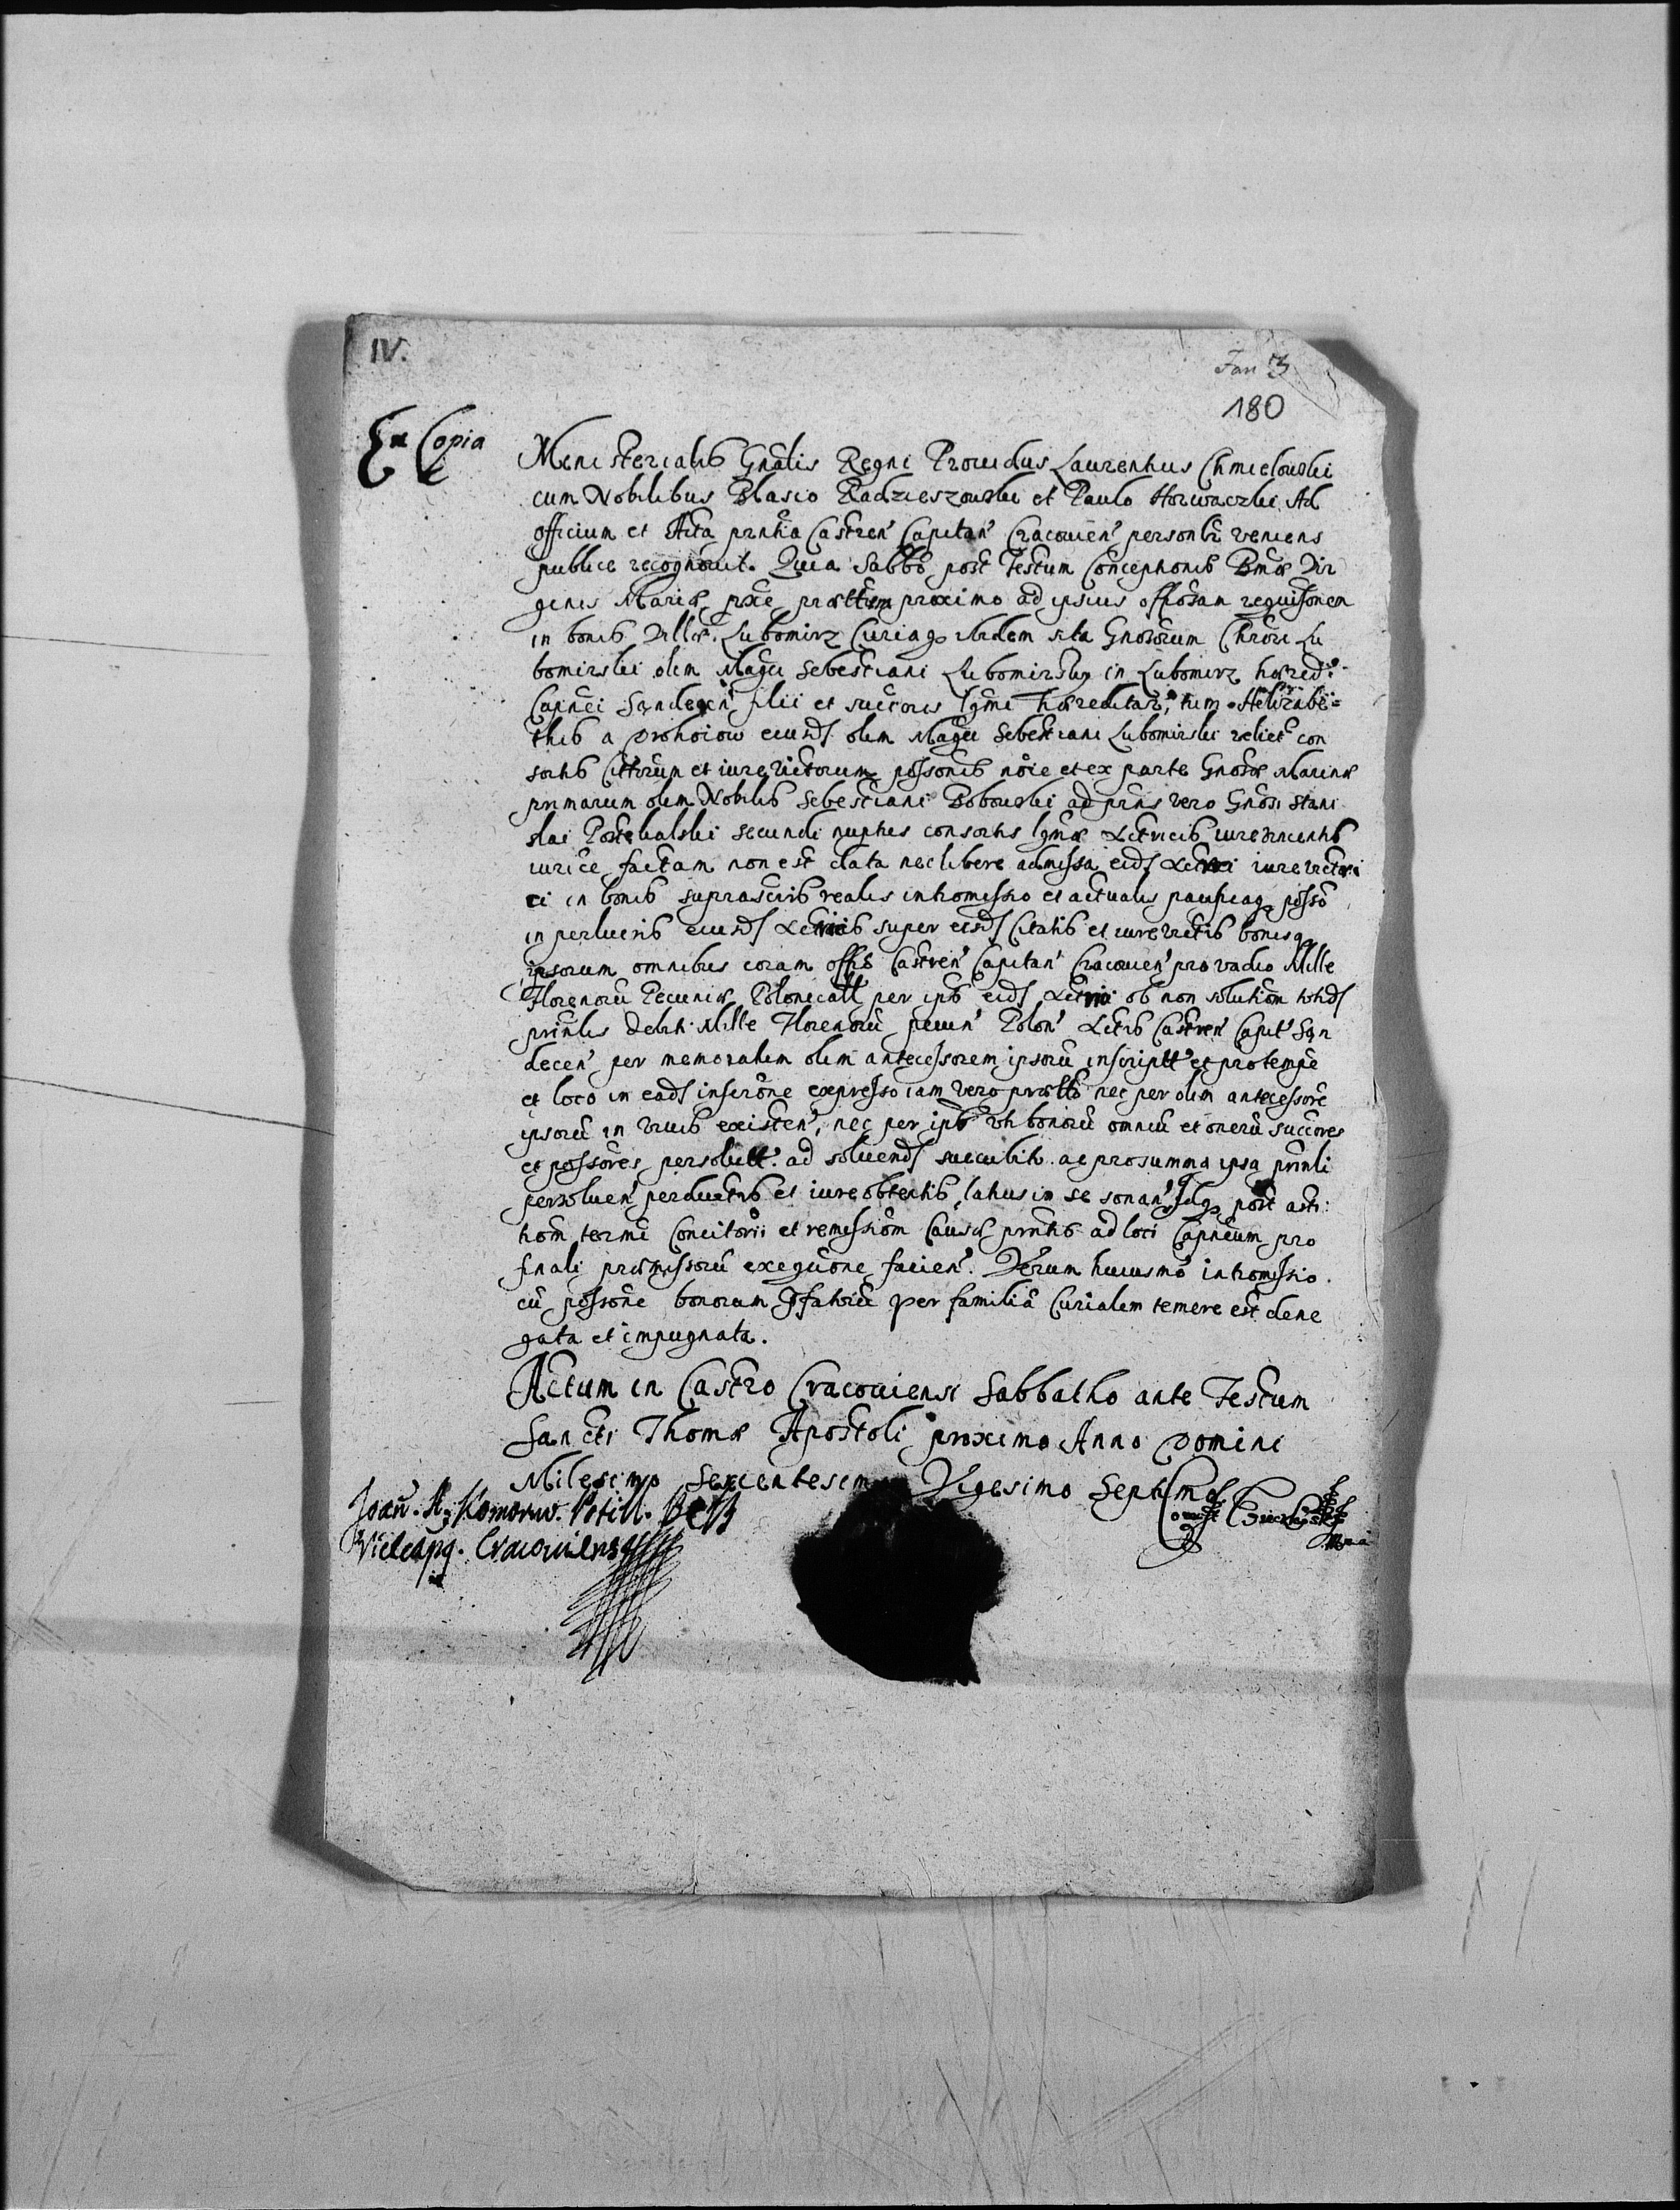 IV.
Fan 3
180
Ex Copia
Ministerialis Gnalis Regni Providus Laurentius Chmielowski
cum Nobilibus Blasio Radzieszowski et Paulo Ad
officium et Acta prntia Castren Capitan Cracovien personlr veniens
publice recognovit. Quia Sabbo post Festum Conceptionis Bmae Vir
ginis Mariae pxe praettum proximo ad ipsius offiosam requisonem
in bonis Villae Lubomirz Curiaq ibidem sita Gnosorum Chrori Lu
bomirski olim Magci Sebestiani Lubomirsky in Lubomirz haered:
Capnei Sandecen filii et succoris lgmi haereditar, tum Helizabe=
this a eiusd olim Magci Sebestiani Lubomirski relict con
sortis Cittorum et iurevictorum possonis noie et ex parte Gnosae Marinae
primarum olim Nobilis Sebestiani Bobowski ad prns vero Gnosi Stani
slai secundi nuptus consortis lgmae Actricis iurevincentis
iurice factam non est data nec libere admissa eid Actrici iurevictri
ci in bonis suprascris realis intromissio et actualis pacificaq posso
in perlucris eiusd Actricis super eisd Citatis et iurevictis bonisq
ipsorum omnibus coram offis Castren Capitan Cracovien pro vadio Mille
Florenoru Pecuniae Polonicall per ips eid Actrici ob non solutiom totid
prinlis debiti Mille Florenoru pecun Polon Actis Castren Capit San
decen per memoratum olim antecessorem ipsoru inscriptt et pro tempe
et loco in ead inscrone expresso iam vero praetto nec per olim antecessore
ipsoru in vivis existen, nec per ips uti bonoru omniu et oneru succores
et possores persolutt. ad solvend succubitis ac pro summa ipsa prinli
persolven perductis et iure obtentis, latius in se sonan, Idq post acti:
tiom termi Concitorii et remissiom Causae prntis ad loci Capneum pro
finali praemissoru exequone facien. Verum huiusmo intromissio
cu possone bonorum pfatoru per familia Curialem temere est dene
gata et impugnata.
Actum in Castro Cracoviensi Sabbatho ante Festum
Sancti Thomae Apostoli proximo Anno Domini
Milesimo Sexcentesimo Vigesimo Septimo
Joan. A. Komorow.
Vicecapq. Cracoviens
mpa